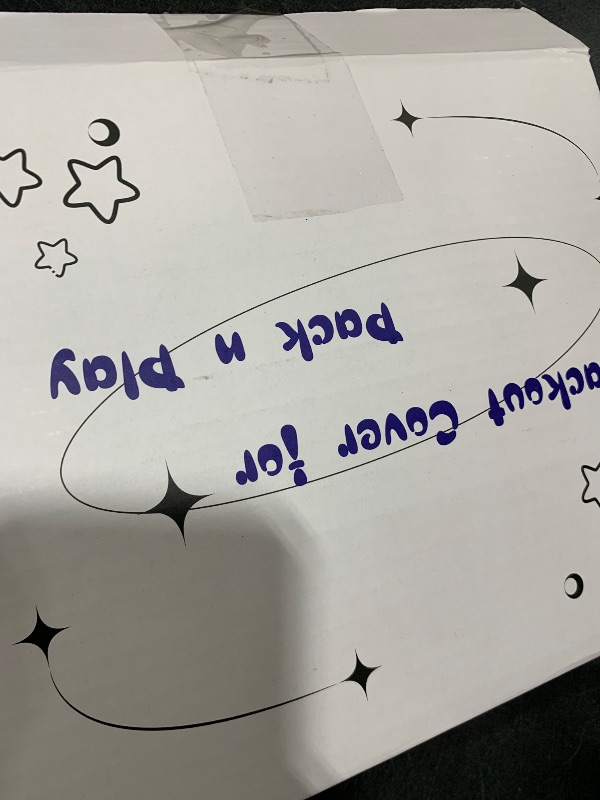 ackout Cover for
Pack n Play